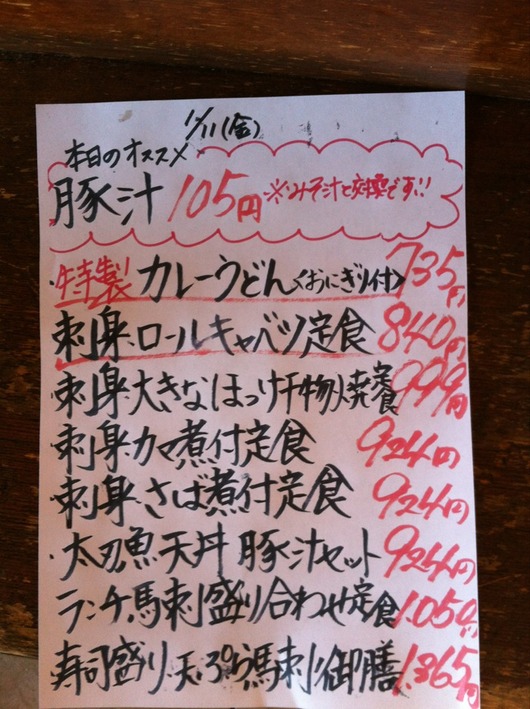 11/11(金)
本日のオススメ
豚汁 105円 ※みそ汁と交換です!!
・特製 カレーうどん〈おにぎり付〉 735円
・刺身・ロールキャベツ定食 840円
・刺身・大きなほっけ干物焼定食 999円
・刺身・カマ煮付定食 924円
・刺身・さば煮付定食 924円
・太刀魚天丼 豚汁セット 924円
・ランチ馬刺盛り合わせ定食 1.050円
・寿司盛り・天ぷら・馬刺し御膳 1.365円